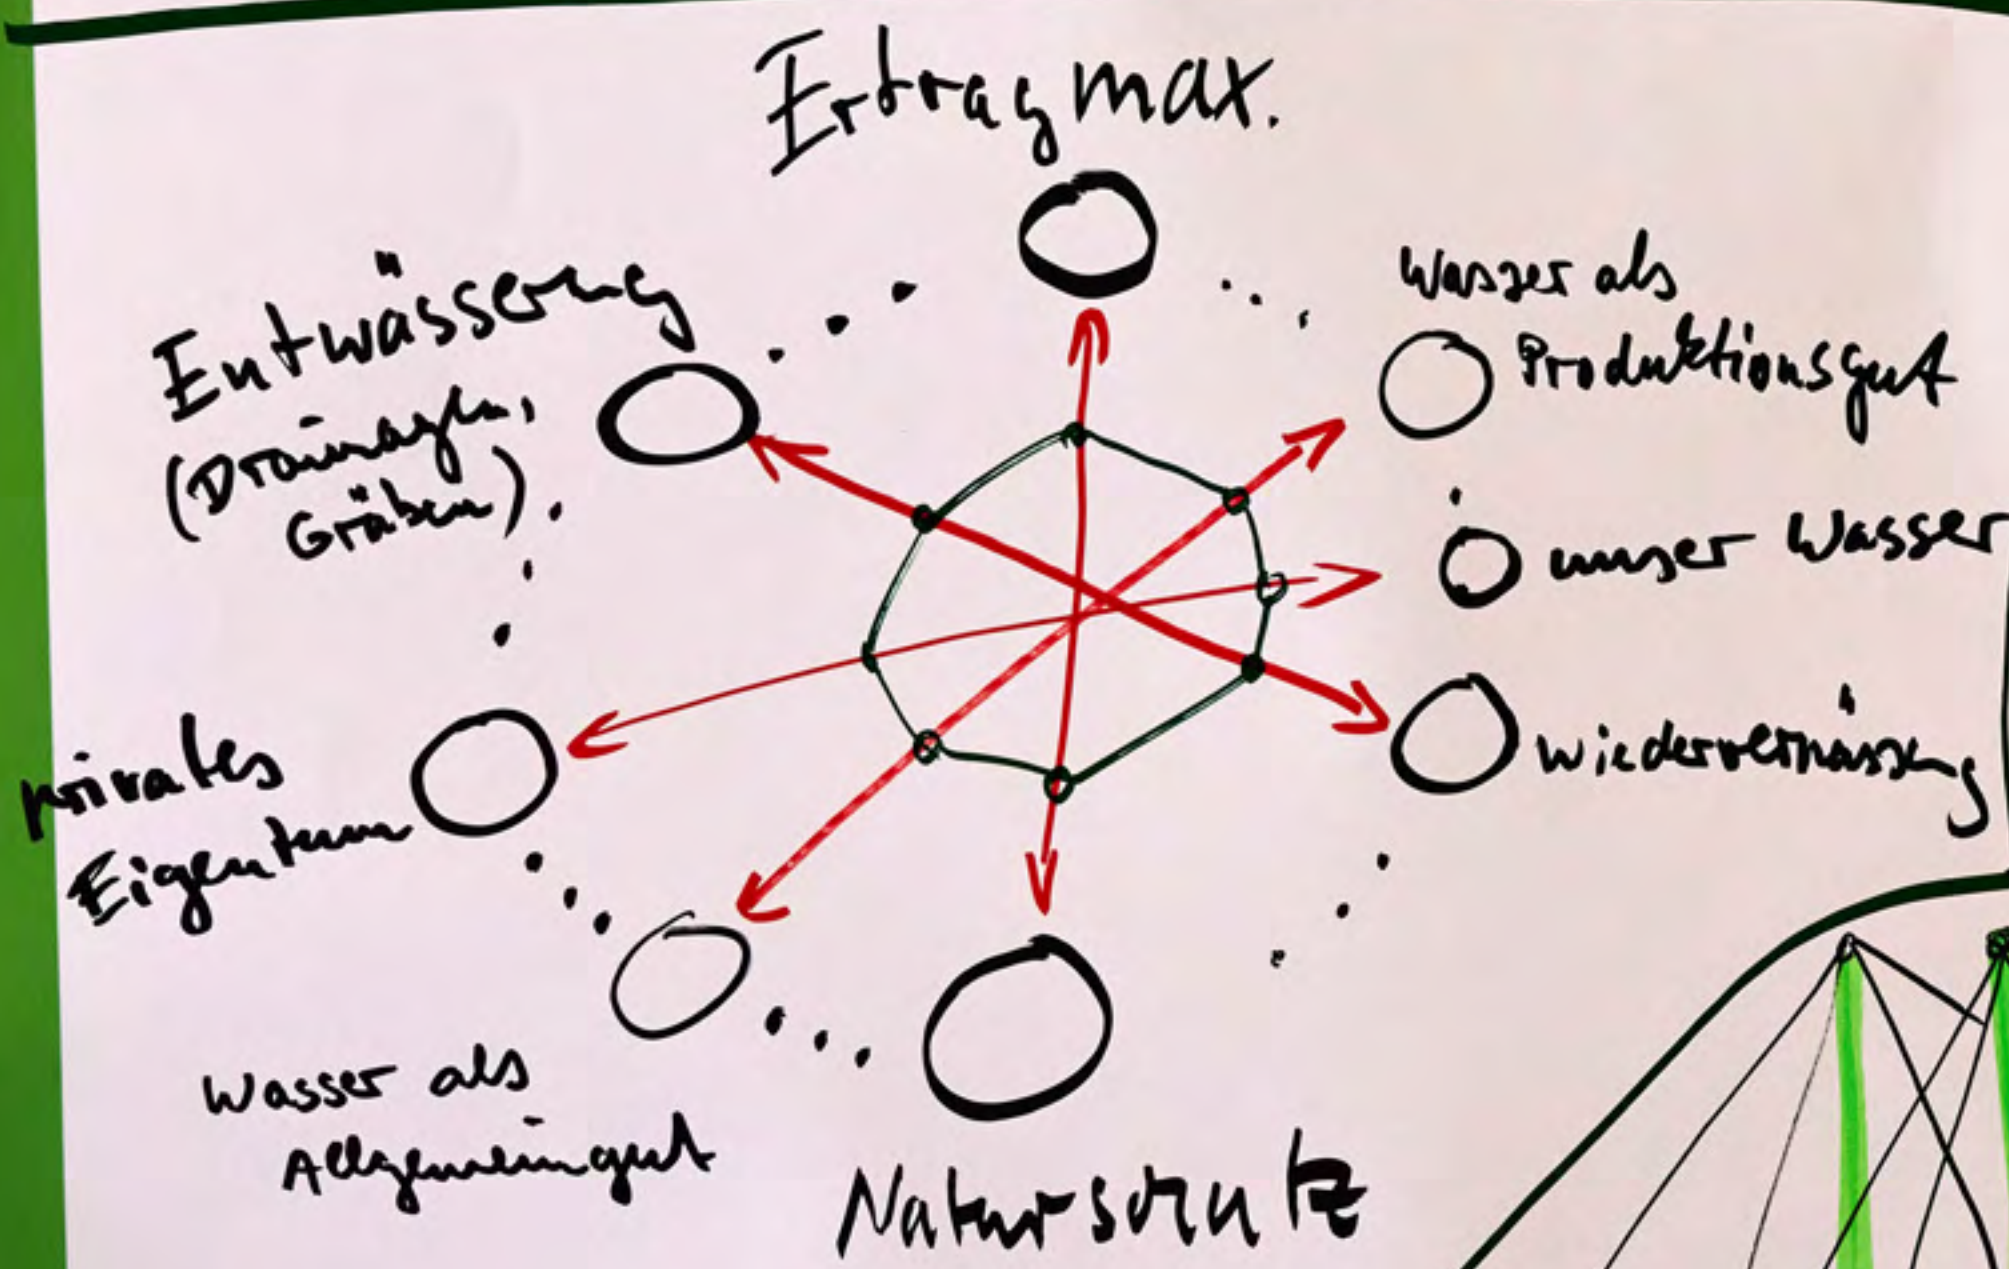 Ertragmax.
Entwässerung
(Drainagen,
Gräben)
Wasser als
Produktionsgut
unser Wasser
Wiedervernässung
privates
Eigentum
Wasser als
Allgemeingut
Naturschutz